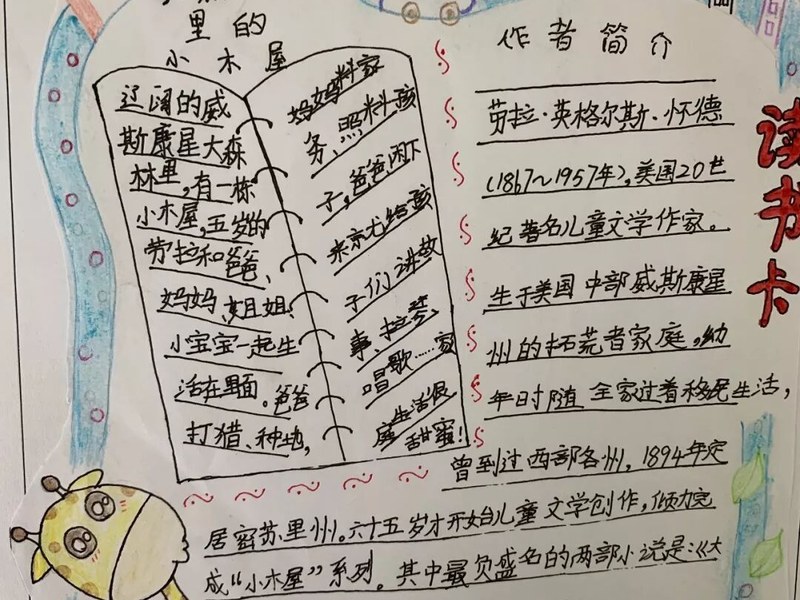 里的
小木屋
辽阔的威
斯康星大森
林里，有一栋
小木屋，五岁的
劳拉和爸爸、
妈妈、姐姐、
小宝宝一起生
活在里面。爸爸
打猎、种地，
妈妈料家
务、照料孩
子，爸爸闲下
来就给孩
子们讲故
事、拉琴、
唱歌……家
庭生活很
甜蜜！
作者简介
劳拉·英格尔斯·怀德
（1867～1957年），美国20世
纪著名儿童文学作家。
生于美国中部威斯康星
州的拓荒者家庭。幼
年时随全家过着移民生活，
曾到过西部各州，1894年定
居密苏里州。六十五岁才开始儿童文学创作，倾力完
成“小木屋”系列。其中最负盛名的两部小说是：《大
读书卡